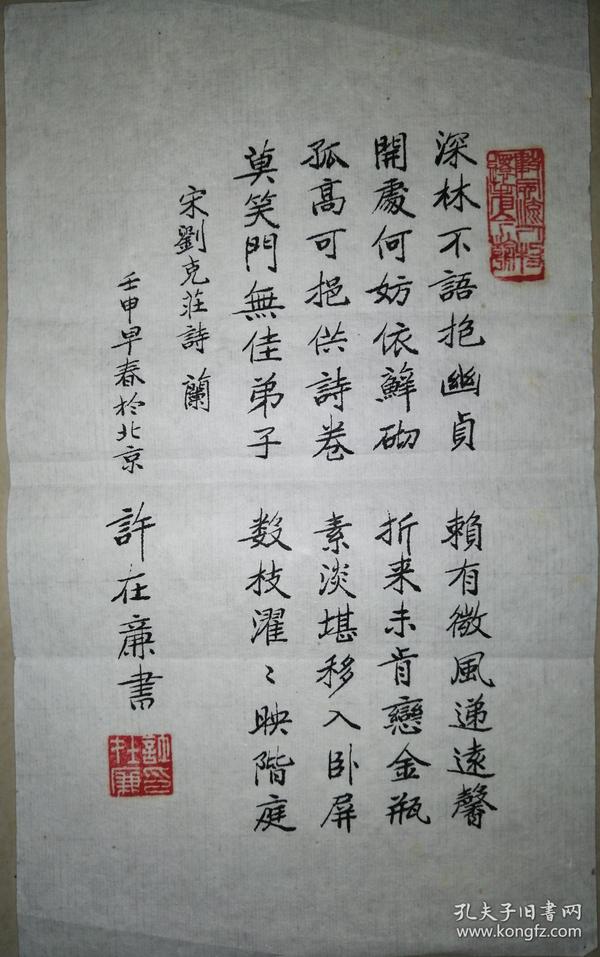 深林不語抱幽貞 賴有微風遞遠馨
開處何妨依蘚砌 折来未肯戀金瓶
孤高可挹供詩卷 素淡堪移入卧屏
莫笑門無佳弟子 数枝濯〻映階庭
宋劉克莊詩 蘭
壬申早春於北京 許在廉書
許印在廉
孔夫子旧书网
www.kongfz.com